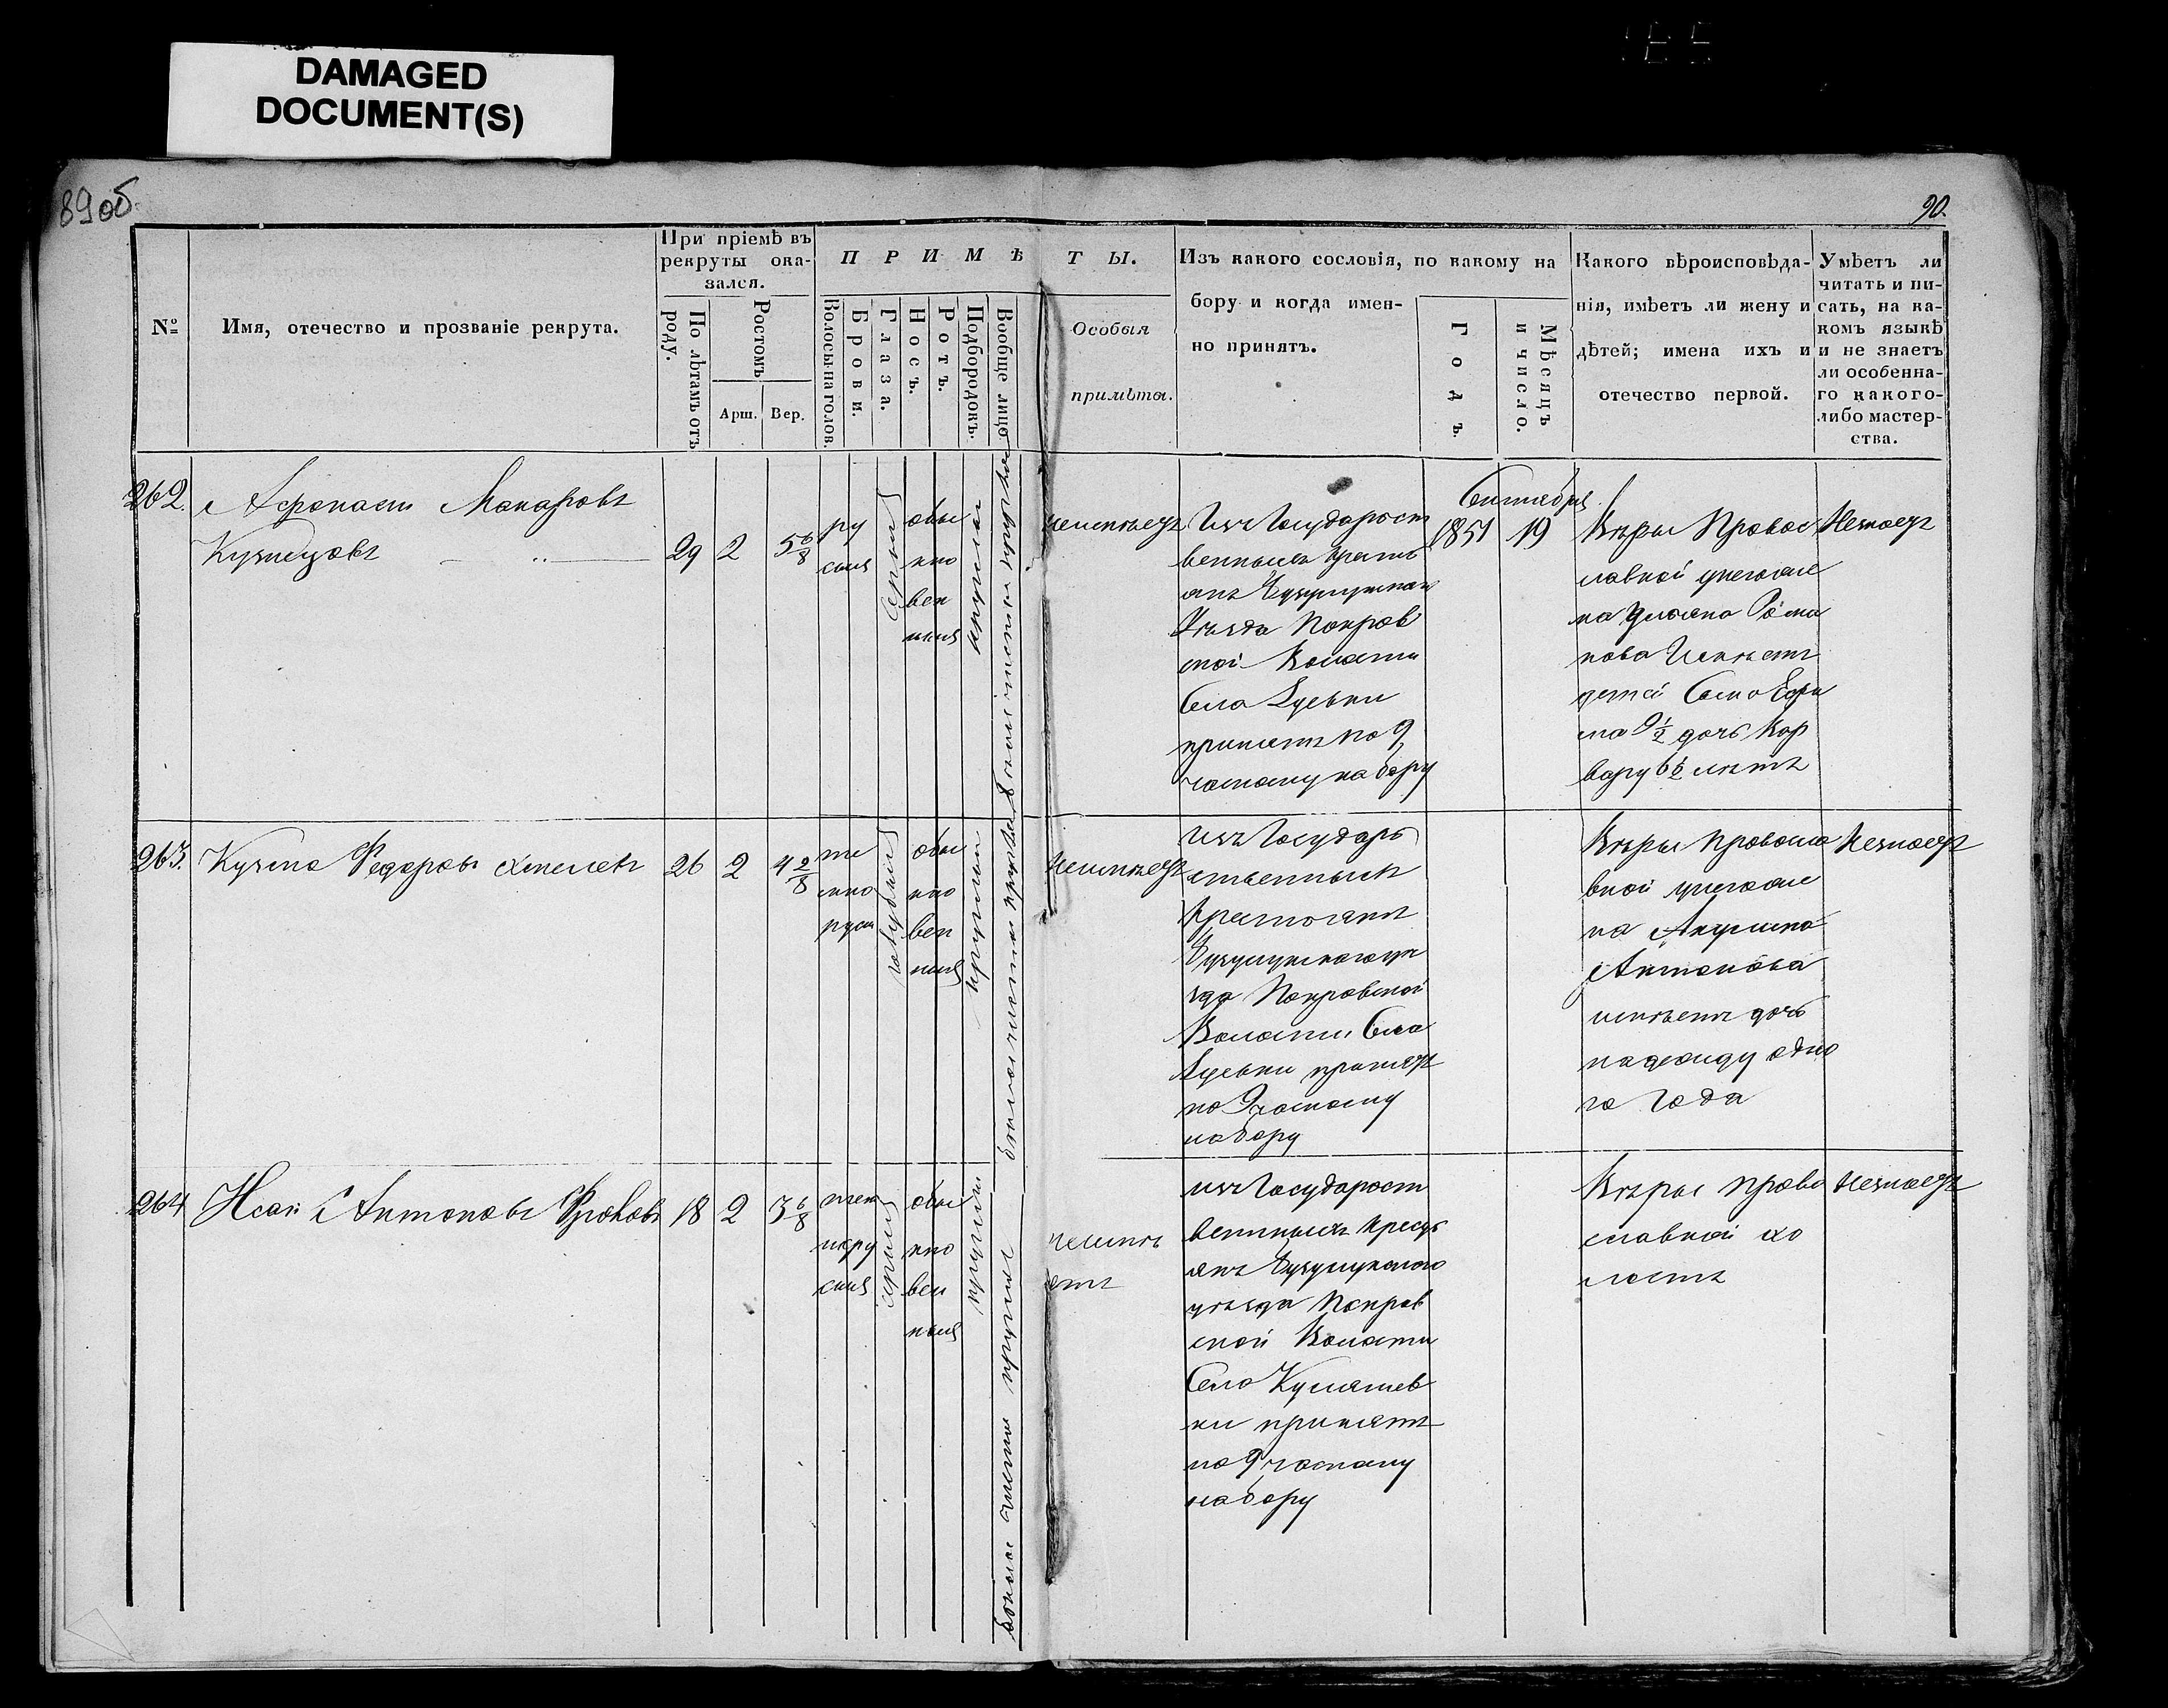 DAMAGED
DOCUMENT(S)
89 об
90.
№
Имя, отечество и прозваніе рекрута.
При пріемѣ въ
рекруты ока-
зался.
По лѣтамъ отъ
роду.
Ростомъ
Арш.
Вер.
ПРИМѢТЫ.
Волосы на голов.
Брови.
Глаза.
Носъ.
Ротъ.
Подбородокъ.
Вообще лицо
Особыя
примѣты.
Изъ какого сословія, по какому на
бору и когда имен-
но принятъ.
Годъ.
Мѣсяцъ
и число.
Какого вѣроисповѣда-
нія, имѣетъ ли жену и
дѣтей; имена ихъ и
отечество первой.
Умѣетъ ли
читать и пи-
сать, на ка-
комъ языкѣ
и не знаетъ
ли особенна-
го какого-
либо мастер-
ства.
262.
Афонасій Макаровъ
Кузнецовъ
29
2
5 6/8
ру
сыя
серыя
обы
кно
вен
ныя
круглой
неимѣетъ
Изъ Государст
венныхъ крсть
янъ Бузулукскаго
Уѣзда Покров
ской Волости
Села
принятъ по 9
частному набору
Сентября
1851
19
Вѣры Правос
лавной унегоже
на Ульяна Рома
нова Имѣетъ
детей Сына Ефи
ма 9 1/2 дочь Вар
вару 6 1/2 летъ
Незнаетъ
263.
Кузма Федоровъ Хмелевъ
26
2
4 2/8
те
мно
русы
голубыя
обы
кно
вен
ныя
круглый
неимѣетъ
изъ Государь
ственныхъ
Крестьянъ
Бузулукскаго уѣ
зда Покровской
Волости Села
принятъ
по 9 частному
набору
Вѣры Правосла
вной унегоже
на Акулина
Антонова
имѣетъ дочь
надежду одно
го Года
Незнаетъ
264
Исай Антоновъ Фроловъ
18
2
3 6/8
темн
нору
сыя
серыя
обы
кно
вен
ныя
круглый
неимѣ
етъ
изъ Государст
венныхъ Кресть
янъ Бузулукскаго
уѣзда Покров
ской Волости
Села
ки принятъ
по 9 частному
набору
Вѣры Право
славной хо
лостъ
Незнаетъ